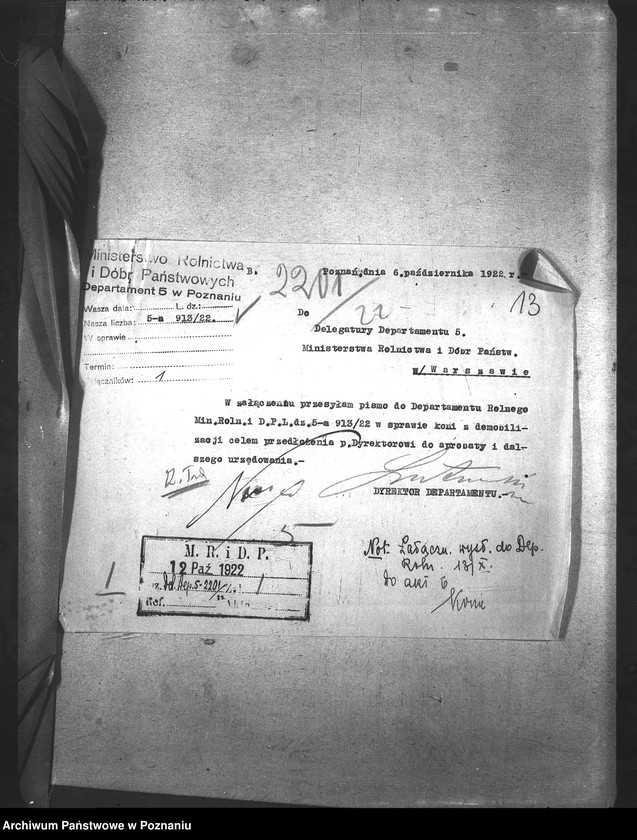 Ministerstwo Rolnictwa
i Dóbr Państwowych
Departament 5 w Poznaniu
B.
Wasza data: L. dz.:
Nasza liczba: 5-a 913/22.
W sprawie
Termin:
łączników: 1
2201/22
Poznań, dnia 6. października 1922. r.-
13
Do
Delegatury Departamentu 5.
Ministerstwa Rolnictwa i Dóbr Państw.
w/Warszawie
W załączeniu przesyłam pismo do Departamentu Rolnego
Min.Roln.i D.P.L.dz.5-a 913/22 w sprawie koni z demobili-
zacji celem przedłożenia p.Dyrektorowi do aprobaty i dal-
szego urzędowania.-
DYREKTOR DEPARTAMENTU.-
5
M. R. i D. P.
12 Paź 1922
Dep. 5-2201/22
Ref.
1
1
Not: Załączn. wysł. do Dep.
Roln. 13/X.
do akt 6
Archiwum Państwowe w Poznaniu